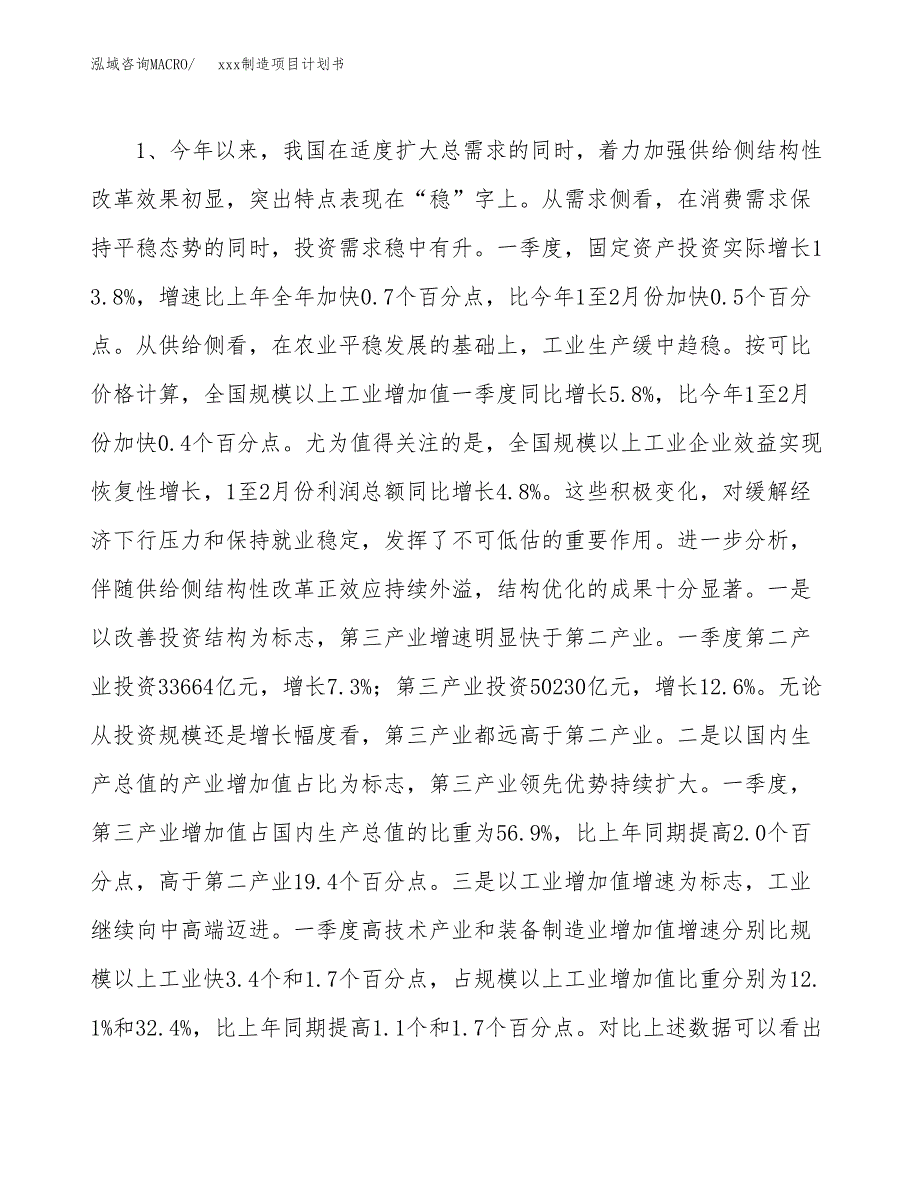 泓域咨询MACRO/ xxx制造项目计划书
1、今年以来，我国在适度扩大总需求的同时，着力加强供给侧结构性
改革效果初显，突出特点表现在“稳”字上。从需求侧看，在消费需求保
持平稳态势的同时，投资需求稳中有升。一季度，固定资产投资实际增长1
3.8%，增速比上年全年加快0.7个百分点，比今年1至2月份加快0.5个百分
点。从供给侧看，在农业平稳发展的基础上，工业生产缓中趋稳。按可比
价格计算，全国规模以上工业增加值一季度同比增长5.8%，比今年1至2月
份加快0.4个百分点。尤为值得关注的是，全国规模以上工业企业效益实现
恢复性增长，1至2月份利润总额同比增长4.8%。这些积极变化，对缓解经
济下行压力和保持就业稳定，发挥了不可低估的重要作用。进一步分析，
伴随供给侧结构性改革正效应持续外溢，结构优化的成果十分显著。一是
以改善投资结构为标志，第三产业增速明显快于第二产业。一季度第二产
业投资33664亿元，增长7.3%；第三产业投资50230亿元，增长12.6%。无论
从投资规模还是增长幅度看，第三产业都远高于第二产业。二是以国内生
产总值的产业增加值占比为标志，第三产业领先优势持续扩大。一季度，
第三产业增加值占国内生产总值的比重为56.9%，比上年同期提高2.0个百
分点，高于第二产业19.4个百分点。三是以工业增加值增速为标志，工业
继续向中高端迈进。一季度高技术产业和装备制造业增加值增速分别比规
模以上工业快3.4个和1.7个百分点，占规模以上工业增加值比重分别为12.
1%和32.4%，比上年同期提高1.1个和1.7个百分点。对比上述数据可以看出